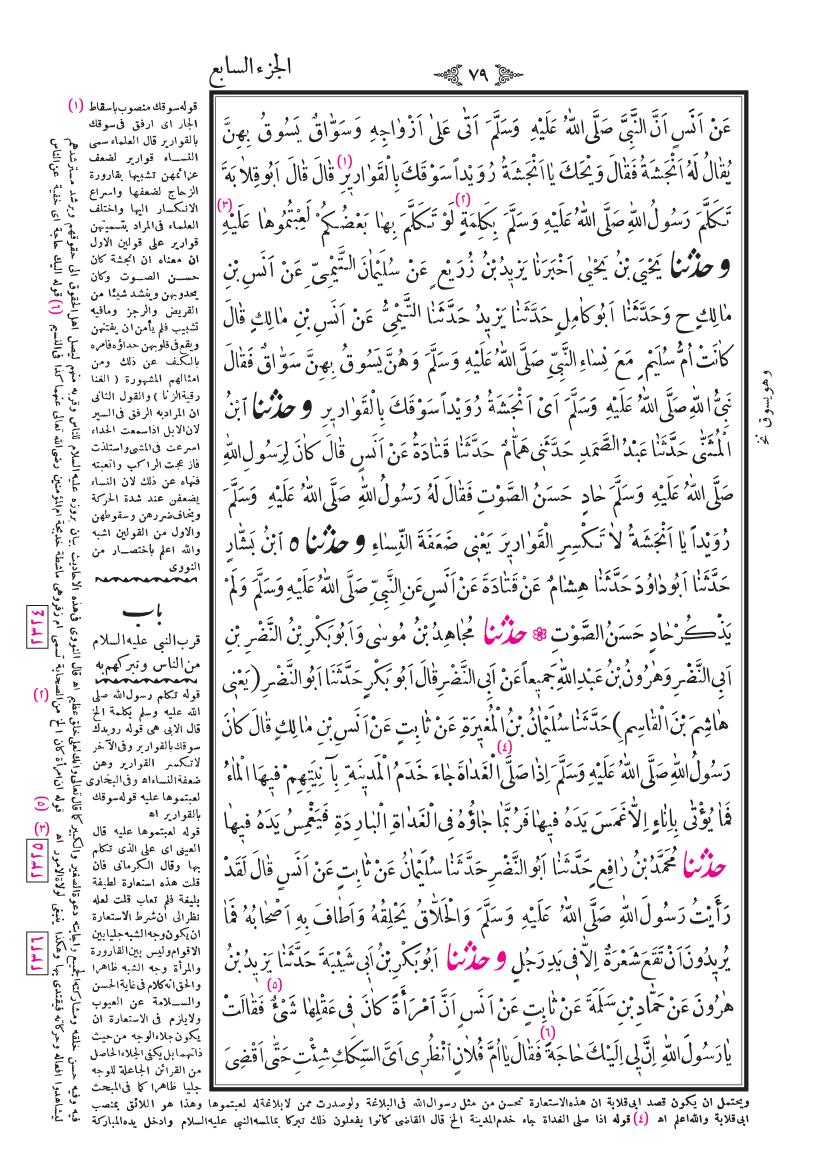 الجزء السابع
٧٩
عَنْ اَنَسٍ اَنَّ النَّبِيَّ صَلَّى اللهُ عَلَيْهِ وَسَلَّمَ اَتٰى عَلٰى اَزْوَاجِهِ وَسَوَّاقٌ يَسُوقُ بِهِنَّ
يُقَالُ لَهُ اَنْجَشَةُ فَقَالَ وَيْحَكَ يَا اَنْجَشَةُ رُوَيْداً سَوْقَكَ بِالْقَوَارِيرِ (١) قَالَ قَالَ اَبُو قِلَابَةَ
تَكَلَّمَ رَسُولُ اللهِ صَلَّى اللهُ عَلَيْهِ وَسَلَّمَ بِكَلِمَةٍ (٢) لَوْ تَكَلَّمَ بِهَا بَعْضُكُمْ لَعِبْتُمُوهَا عَلَيْهِ (٣)
وحدثنا يَحْيَى بْنُ يَحْيٰى اَخْبَرَنَا يَزِيدُ بْنُ زُرَيْعٍ عَنْ سُلَيْمَانَ التَّيْمِيِّ عَنْ اَنَسِ بْنِ
مَالِكٍ ح وَحَدَّثَنَا اَبُو كَامِلٍ حَدَّثَنَا يَزِيدُ حَدَّثَنَا التَّيْمِيُّ عَنْ اَنَسِ بْنِ مَالِكٍ قَالَ
كَانَتْ اُمُّ سُلَيْمٍ مَعَ نِسَاءِ النَّبِيِّ صَلَّى اللهُ عَلَيْهِ وَسَلَّمَ وَهُنَّ يَسُوقُ بِهِنَّ سَوَّاقٌ فَقَالَ
نَبِيُّ اللهِ صَلَّى اللهُ عَلَيْهِ وَسَلَّمَ اَىْ اَنْجَشَةُ رُوَيْداً سَوْقَكَ بِالْقَوَارِيرِ وحدثنا ابْنُ
الْمُثَنّٰى حَدَّثَنَا عَبْدُ الصَّمَدِ حَدَّثَنِي هَمَّامٌ حَدَّثَنَا قَتَادَةُ عَنْ اَنَسٍ قَالَ كَانَ لِرَسُولِ اللهِ
صَلَّى اللهُ عَلَيْهِ وَسَلَّمَ حَادٍ حَسَنُ الصَّوْتِ فَقَالَ لَهُ رَسُولُ اللهِ صَلَّى اللهُ عَلَيْهِ وَسَلَّمَ
رُوَيْداً يَا اَنْجَشَةُ لَا تَكْسِرِ الْقَوَارِيرَ يَعْنِي ضَعَفَةَ النِّسَاءِ وحدثناه ابْنُ بَشَّارٍ
حَدَّثَنَا اَبُو دَاوُدَ حَدَّثَنَا هِشَامٌ عَنْ قَتَادَةَ عَنْ اَنَسٍ عَنِ النَّبِيِّ صَلَّى اللهُ عَلَيْهِ وَسَلَّمَ وَلَمْ
يَذْكُرْ حَادٍ حَسَنُ الصَّوْتِ ❁ حدثنا مُجَاهِدُ بْنُ مُوسٰى وَاَبُو بَكْرِ بْنُ النَّضْرِ بْنِ
اَبِي النَّضْرِ وَهٰرُونُ بْنُ عَبْدِ اللهِ جَمِيعاً عَنْ اَبِي النَّضْرِ قَالَ اَبُو بَكْرٍ حَدَّثَنَا اَبُو النَّضْرِ (يَعْنِي
هَاشِمَ بْنَ الْقَاسِمِ) حَدَّثَنَا سُلَيْمَانُ بْنُ الْمُغِيرَةِ عَنْ ثَابِتٍ عَنْ اَنَسِ بْنِ مَالِكٍ قَالَ كَانَ
رَسُولُ اللهِ صَلَّى اللهُ عَلَيْهِ وَسَلَّمَ اِذَا صَلَّى الْغَدَاةَ (٤) جَاءَ خَدَمُ الْمَدِينَةِ بِآنِيَتِهِمْ فِيهَا الْمَاءُ
فَمَا يُؤْتٰى بِاِنَاءٍ اِلَّا غَمَسَ يَدَهُ فِيهَا فَرُبَّمَا جَاؤُهُ فِي الْغَدَاةِ الْبَارِدَةِ فَيَغْمِسُ يَدَهُ فِيهَا
حدثنا مُحَمَّدُ بْنُ رَافِعٍ حَدَّثَنَا اَبُو النَّضْرِ حَدَّثَنَا سُلَيْمَانُ عَنْ ثَابِتٍ عَنْ اَنَسٍ قَالَ لَقَدْ
رَأَيْتُ رَسُولَ اللهِ صَلَّى اللهُ عَلَيْهِ وَسَلَّمَ وَالْحَلَّاقُ يَحْلِقُهُ وَاَطَافَ بِهِ اَصْحَابُهُ فَمَا
يُرِيدُونَ اَنْ تَقَعَ شَعْرَةٌ اِلَّا فِي يَدِ رَجُلٍ وحدثنا اَبُو بَكْرِ بْنُ اَبِي شَيْبَةَ حَدَّثَنَا يَزِيدُ بْنُ
هٰرُونَ عَنْ حَمَّادِ بْنِ سَلَمَةَ عَنْ ثَابِتٍ عَنْ اَنَسٍ اَنَّ امْرَأَةً كَانَ فِي عَقْلِهَا شَىْءٌ (٥) فَقَالَتْ
يَا رَسُولَ اللهِ اِنَّ لِي اِلَيْكَ حَاجَةً (٦) فَقَالَ يَا اُمَّ فُلَانٍ اُنْظُرِي اَىَّ السِّكَكِ شِئْتِ حَتّٰى اَقْضِيَ
وهو يسوق نخ
(١) قوله سوقك منصوب باسقاط
الجار اى ارفق فى سوقك
بالقوارير قال العلماء سمى
النساء قوارير لضعف
عزائمهن تشبيها بقارورة
الزجاج لضعفها واسراع
الانكسار اليها واختلف
العلماء فى المراد بتسميتهن
قوارير على قولين الاول
ان معناه ان انجشة كان
حسن الصوت وكان
يحدو بهن وينشد شيئا من
القريض والرجز ومافيه
تشبيب فلم يأمن ان يفتنهن
ويقع فى قلوبهن حداؤه فامره
بالكف عن ذلك ومن
امثالهم المشهورة (الغنا
رقية الزنا) والقول الثانى
ان المراد به الرفق فى السير
لان الابل اذا سمعت الحداء
اسرعت فى المشى واستلذت
فازعجت الراكب واتعبته
فنهاه عن ذلك لان النساء
يضعفن عند شدة الحركة
ويخاف ضررهن وسقوطهن
والاول من القولين اشبه
والله اعلم باختصار من
النووى
باب
قرب النبى عليه السلام
من الناس وتبركهم به
(٢) قوله تكلم رسول الله صلى
الله عليه وسلم بكلمة الخ
قال الابى هى قوله رويدك
سوقك بالقوارير وفى الآخر
لاتكسر القوارير وهن
ضعفة النساء اه وفى البخارى
لعبتموها عليه قوله سوقك
بالقوارير اه
(٣) قوله لعبتموها عليه قال
العينى اى على الذى تتكلم
بها وقال الكرمانى فان
قلت هذه استعارة لطيفة
بليغة فلم تعاب قلت لعله
نظر الى ان شرط الاستعارة
ان يكون وجه الشبه جليا بين
الاقوام وليس بين القارورة
والمرأة وجه الشبه ظاهرا
والحق انه كلام فى غاية الحسن
والسلامة عن العيوب
ولا يلزم فى الاستعارة ان
يكون جلاء الوجه من حيث
ذاتهما بل يكفى الجلاء الحاصل
من القرائن الجاعلة للوجه
جليا ظاهرا كما فى المبحث
ويحتمل ان يكون قصد ابى قلابة ان هذه الاستعارة تحسن من مثل رسول الله فى البلاغة ولو صدرت ممن لا بلاغة له لعبتموها وهذا هو اللائق بمنصب
ابى قلابة والله اعلم اه (٤) قوله اذا صلى الغداة جاء خدم المدينة الخ قال القاضى كانوا يفعلون ذلك تبركا بما لمسه النبى عليه السلام وادخل يده المباركة
٢٣٢٤
٢٣٢٥
٢٣٢٦